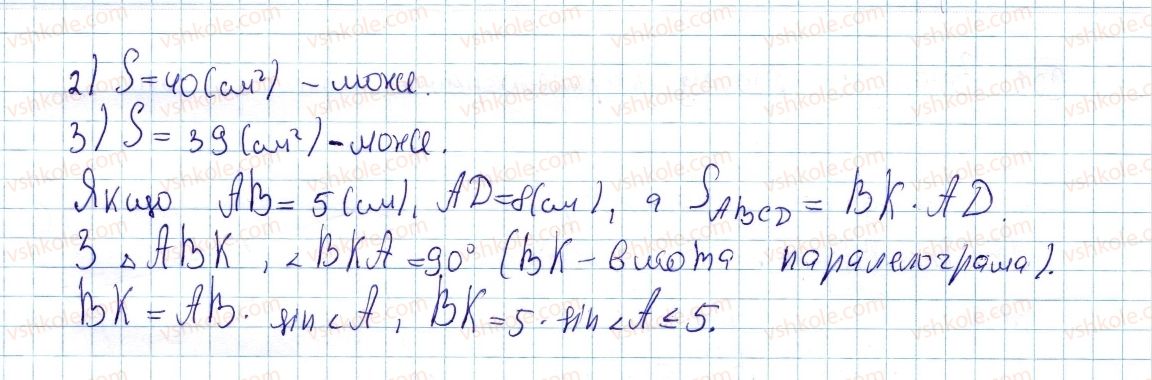 2) S = 40 (см²) – може.
3) S = 39 (см²) – може.
Якщо AB = 5 (см), AD = 8 (см), а S_ABCD = BK · AD.
З △ ABK, ∠ BKA = 90° (BK – висота паралелограма).
BK = AB · sin ∠ A, BK = 5 · sin ∠ A ≤ 5.